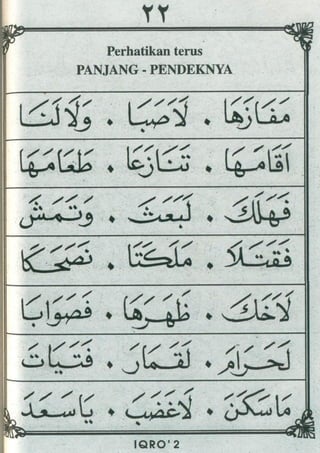 ٢٢
Perhatikan terus
PANJANG - PENDEKNYA
مَفَازَهَا . لَاصَبَا . وَلَالَنَا
اَقَامَهَا . تَنَازَعَا . طَعَامَهَا
فَهَلَكَ . لَبَعَثَ . وَتَمَشَ
فَقَتَلَا . مَلَكَتَا . نَضَحَكَا
لَاخَكَ . ظَهَرَهَا . فَصَوَابَا
لَحَرَامَ . لَقَمَارَ . فَتَيَاتَ
مَاسَكَنَ . لَاغَضَبَ . يَاسَعَدَ
IQRO' 2